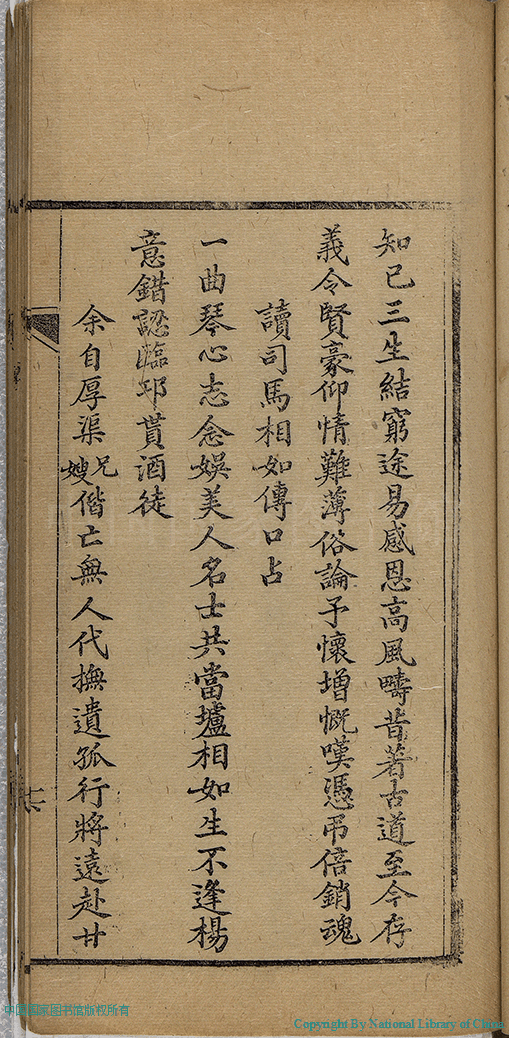 知已三生結窮途易感恩高風疇昔著古道至今存
義令賢豪仰情難薄俗論予懷增慨嘆憑吊倍銷魂
讀司馬相如傳口占
一曲琴心志念娛美人名士共當壚相如生不逢楊
意錯認臨邛貰酒徒
余自厚渠兄嫂偕亡無人代撫遺孤行將遠赴廿
中国国家图书馆版权所有
Copyright By National Library of China